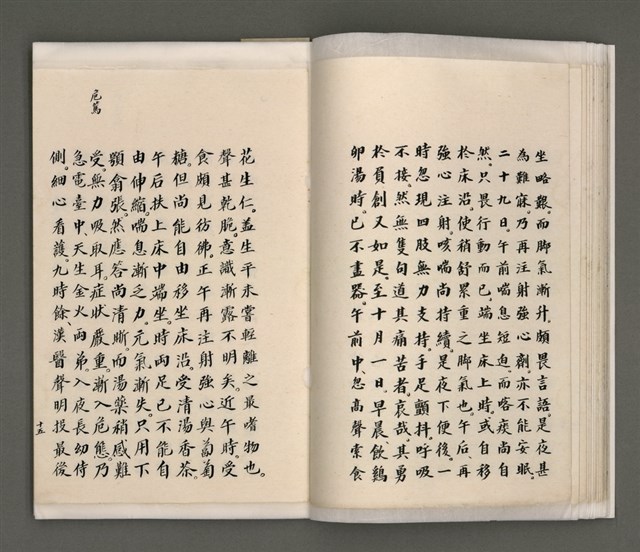 坐略艱。而脚氣漸升。頗畏言語。是夜甚
為難寐。乃再注射強心劑。亦不能安眠。
二十九日。午前喘息短迫。而喀痰尚自
然。只畏行動而已。端坐床上時。或自移
於床沿。使稍舒累重之脚氣也。午后、再
強心注射。咳喘尚持續。是夜下便後。一
時忽現四肢無力支持。手足顫抖。呼吸
不接。然無隻句道其痛苦者。哀哉。其勇
於負創又如是。至十月一日。早晨、飲鷄
卵湯時。已不盡器。午前中、忽高聲索食
花生仁。蓋生平未嘗輕離之最嗜物也。
聲甚乾脆。意識漸露不明矣。近午時。受
食頗見彷彿。正午再注射強心與葡萄
糖。但尚能自由移坐床沿。受清湯香茶。
午后扶上床中端坐。時兩足已不能自
由伸縮。喘息漸乏力。元氣漸失。只用下
顎翕張。然應答尚清晰。而湯藥稍感難
受。無力吸取耳。症狀嚴重。漸入危態。乃
急電臺中、天生金火兩弟。入夜長幼侍
側。細心看護。九時餘漢醫聲明投最後
危篤
十五